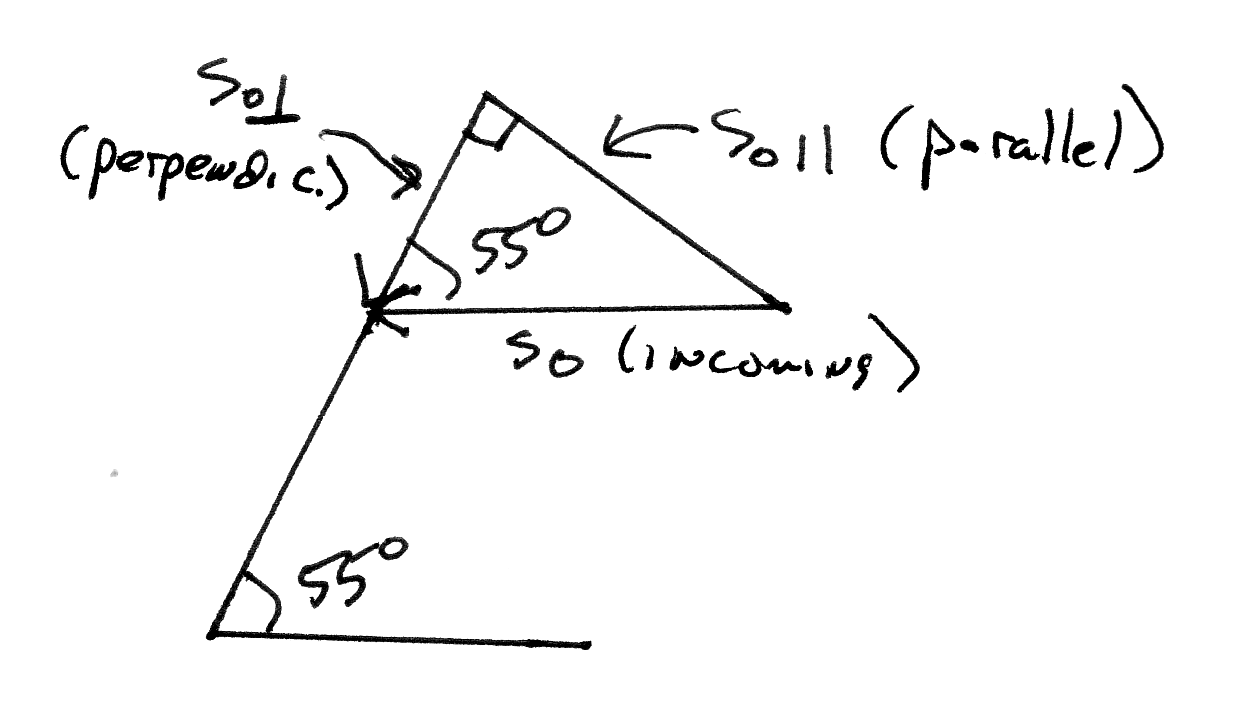 S₀⊥
(perpendic.)
S₀∥ (parallel)
55°
S₀ (incoming)
55°